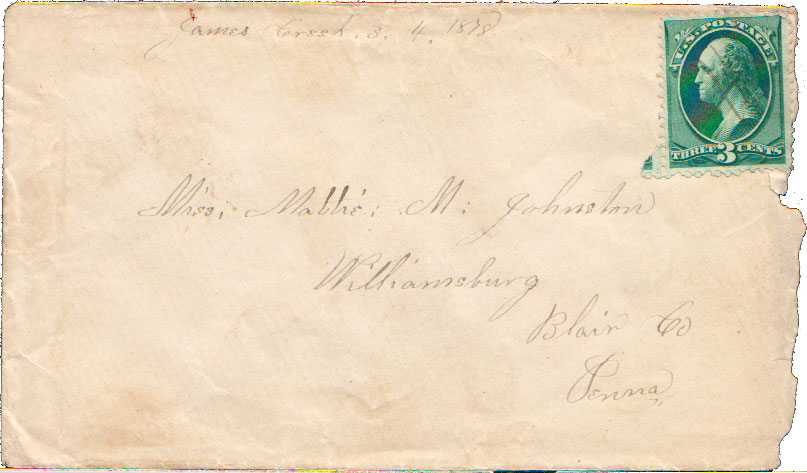 James Creek. 3. 4. 1878
U.S. POSTAGE
THREE 3 CENTS
Miss. Mattie. M. Johnston
Williamsburg
Blair Co
Penna